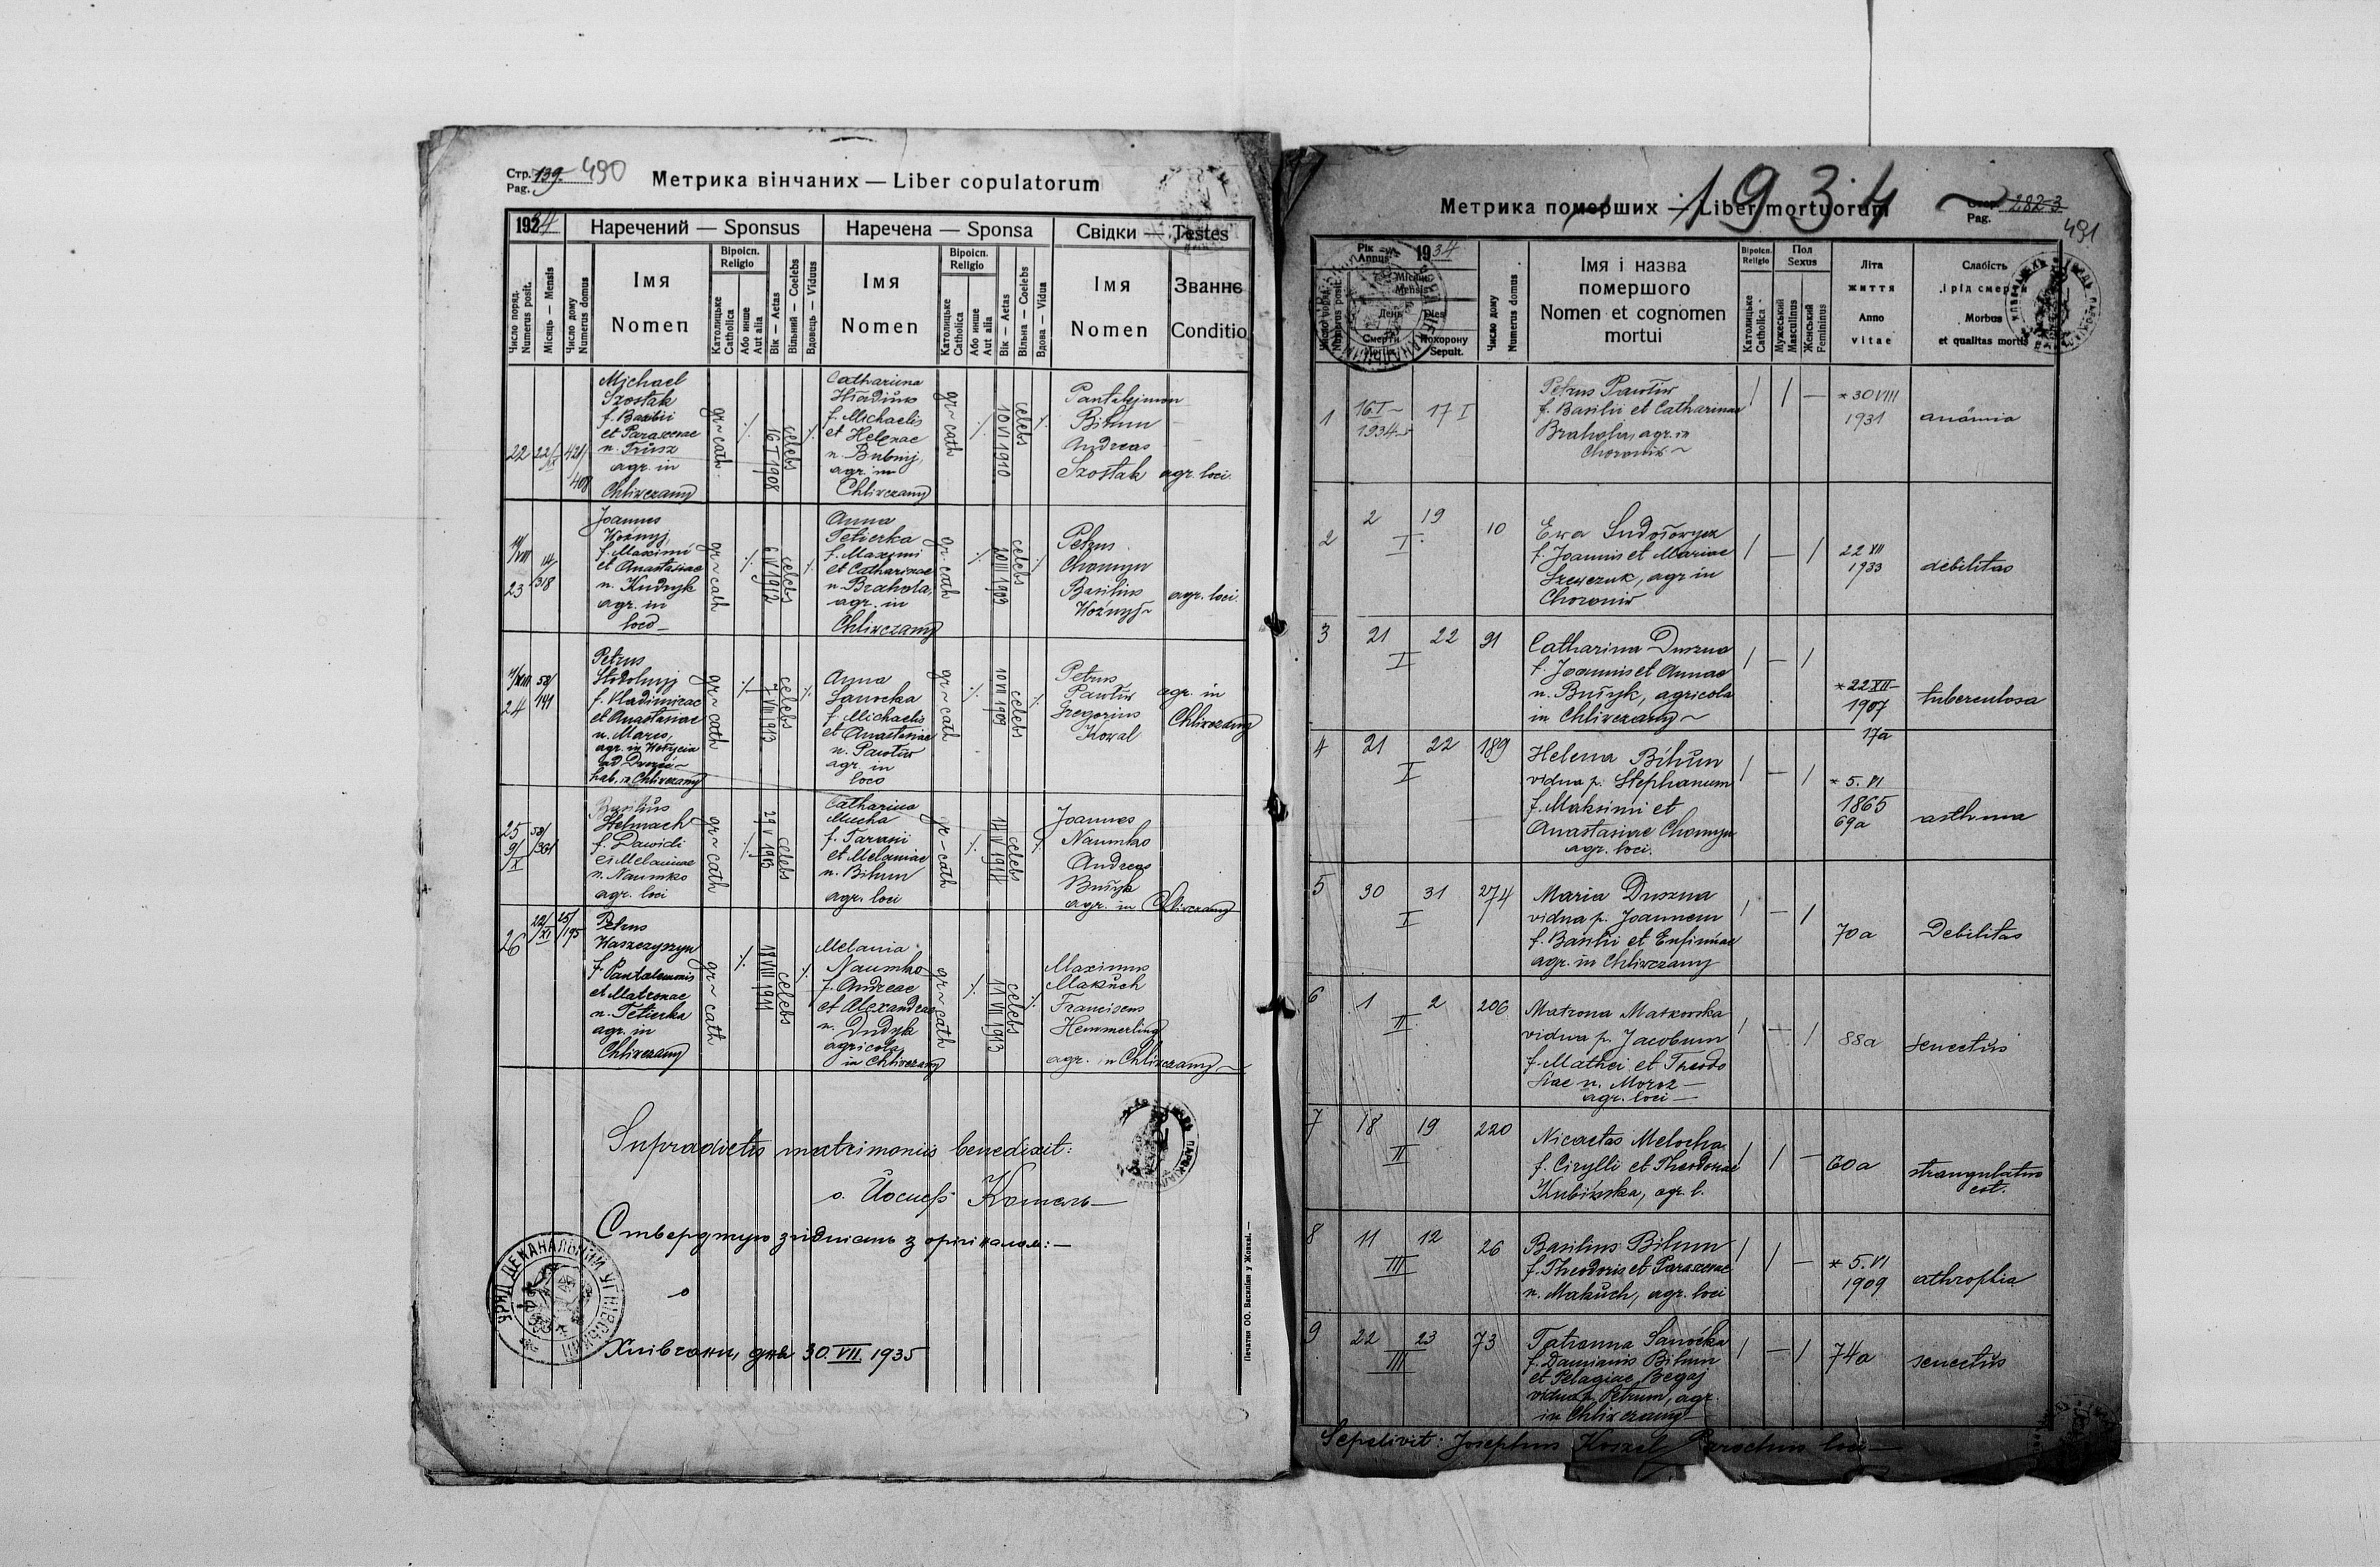 Стр. 139. 490
Pag.
Метрика вінчаних — Liber copulatorum
1934
Наречений — Sponsus
Наречена — Sponsa
Свідки — Testes
Число поряд.
Numerus posit.
Місяць — Mensis
Число дому
Numerus domus
Імя
Nomen
Віроісп.
Religio
Католицьке
Catholica
Або инше
Aut alia
Вік — Aetas
Вільний — Coelebs
Вдовець — Viduus
Імя
Nomen
Віроісп.
Religio
Католицьке
Catholica
Або инше
Aut alia
Вік — Aetas
Вільна — Coelebs
Вдова — Vidua
Імя
Nomen
Званнє
Conditio
22
421/
408
Michael
Szostak
f. Basilii
et Parascevae
n. Trusz
agr. in
Chliwczany
gr-cath
16 I 1908
celebs
Catharina
Hladiuk
f. Michaelis
et Helenae
n. Bubnij,
agr. in
Chliwczany
gr-cath
10 VI 1910
celebs
Pantelejmon
Bihun
Andreas
Szostak agr. loci.
23
14/
318
Joannes
Woźnyj,
f. Maximi
et Anastasiae
n. Kudryk
agr. in
loco
gr-cath
6 IV 1912
celebs
Anna
Teterka
f. Maximi
et Catharinae
n. Brahola,
agr. in
Chliwczany
gr-cath
celebs
Petrus
Chomyn
Basilius
Woźnyj
agr. loci.
24
58/
141
Petrus
Stodolnyj
f. Vladimirae
et Anastasiae
n. Marco,
agr. in
hab. in Chliwczany
gr-cath
7 VIII 1913
celebs
Anna
Sanocka
f. Michaelis
et Anastasiae
n. Pawliw
agr. in
loco
gr-cath
10 VII 1909
celebs
Petrus
Gregorius
Kowal
agr. in
Chliwczany
25
9/
X
58/
361
Basilius
Stelmach
f. Dawidi
et Melaniae
n. Naumko
agr. loci
gr-cath
29 V 1913
celebs
Catharina
Mucha
f. Tarasii
et Melaniae
n. Bihun
agr. loci
gr-cath
celebs
Joannes
Naumko
Andreas
agr. in Chliwczany
26
22/
XI
25/
195
Petrus
Waszczyszyn
f. Pantalemonis
et Matronae
n. Teterka
agr. in
Chliwczany
gr-cath
18 VIII 1911
celebs
Melania
Naumko
f. Andreae
et Alexandrae
n. Dudyk
agricola
in Chliwczany
gr-cath
11 VII 1913
celebs
Maximus
Makuch
Franciscus
Hemmerling
agr. in Chliwczany
Supradictis matrimoniis benedixit:
о. Йосиф
Стверджую згідність з оригіналом:
Хлівчани, дня 30. VII 1935
Печатня ОО. Василіян у Жовкві. —
1934
Метрика померших — Liber mortuorum
Стор. 282 3
Pag.
491
Рік
Annus
1934
Число поряд.
Numerus posit.
Місяць
Mensis
День
Dies
Смерти
Mortis
Похорону
Sepult.
Число дому
Numerus domus
Імя і назва
помершого
Nomen et cognomen
mortui
Віроісп.
Religio
Католицьке
Catholica
Пол
Sexus
Мужеський
Masculinus
Женський
Femininus
Літа
життя
Anno
vitae
Слабість
і рід смерти
Morbus
et qualitas mortis
1
16 I
1934
17 I
Petrus
f. Basilii et Catharinae
Brahola, agr. in
Choroniw
* 30 VIII
1931
anämia
2
2 19
I
10
Ewa
f. Joannis et Mariae
Szewczuk, agr in
Choroniw
22 XII
1933
debilitas
3
21 22
I
91
Catharina Duszna
f. Joannis et Annae
n. Busyk, agricola
in Chliwczany
* 22 XII
1907
17a
tuberculosa
4
21 22
I
189
Helena Bihun
vidua p. Stephanum
f. Maksimi et
Anastasiae Chomyn
agr. loci.
* 5. VI
1865
69a
asthma
5
30 31
I
274
Maria Duszna
vidua p. Joannem
f. Basilii et Eufimiae
agr. in Chliwczany
70a
Debilitas
6
1 2
II
206
Matrona Matkowska
vidua p. Jacobum
f. Mathei et Theodo
siae n. Moroz
agr. loci
88a
senectus
7
18 19
II
220
Nicetas Melocha
f. Cirylli et Theodosiae
Kubiwska, agr. l.
60a
strangulatus
est.
8
11 12
III
26
Basilius Bihun
f. Theodoris et Parascevae
n. Makuch, agr. loci
* 5. VI
1909
athrophia
9
22 23
III
73
Tatianna Sanocka
f. Damianis Bihun
et Pelagiae Begaj
vidua p. Petrum, agr.
in Chliwczany
74a
senectus
Sepelivit: Josephus Koszel, Parochus loci